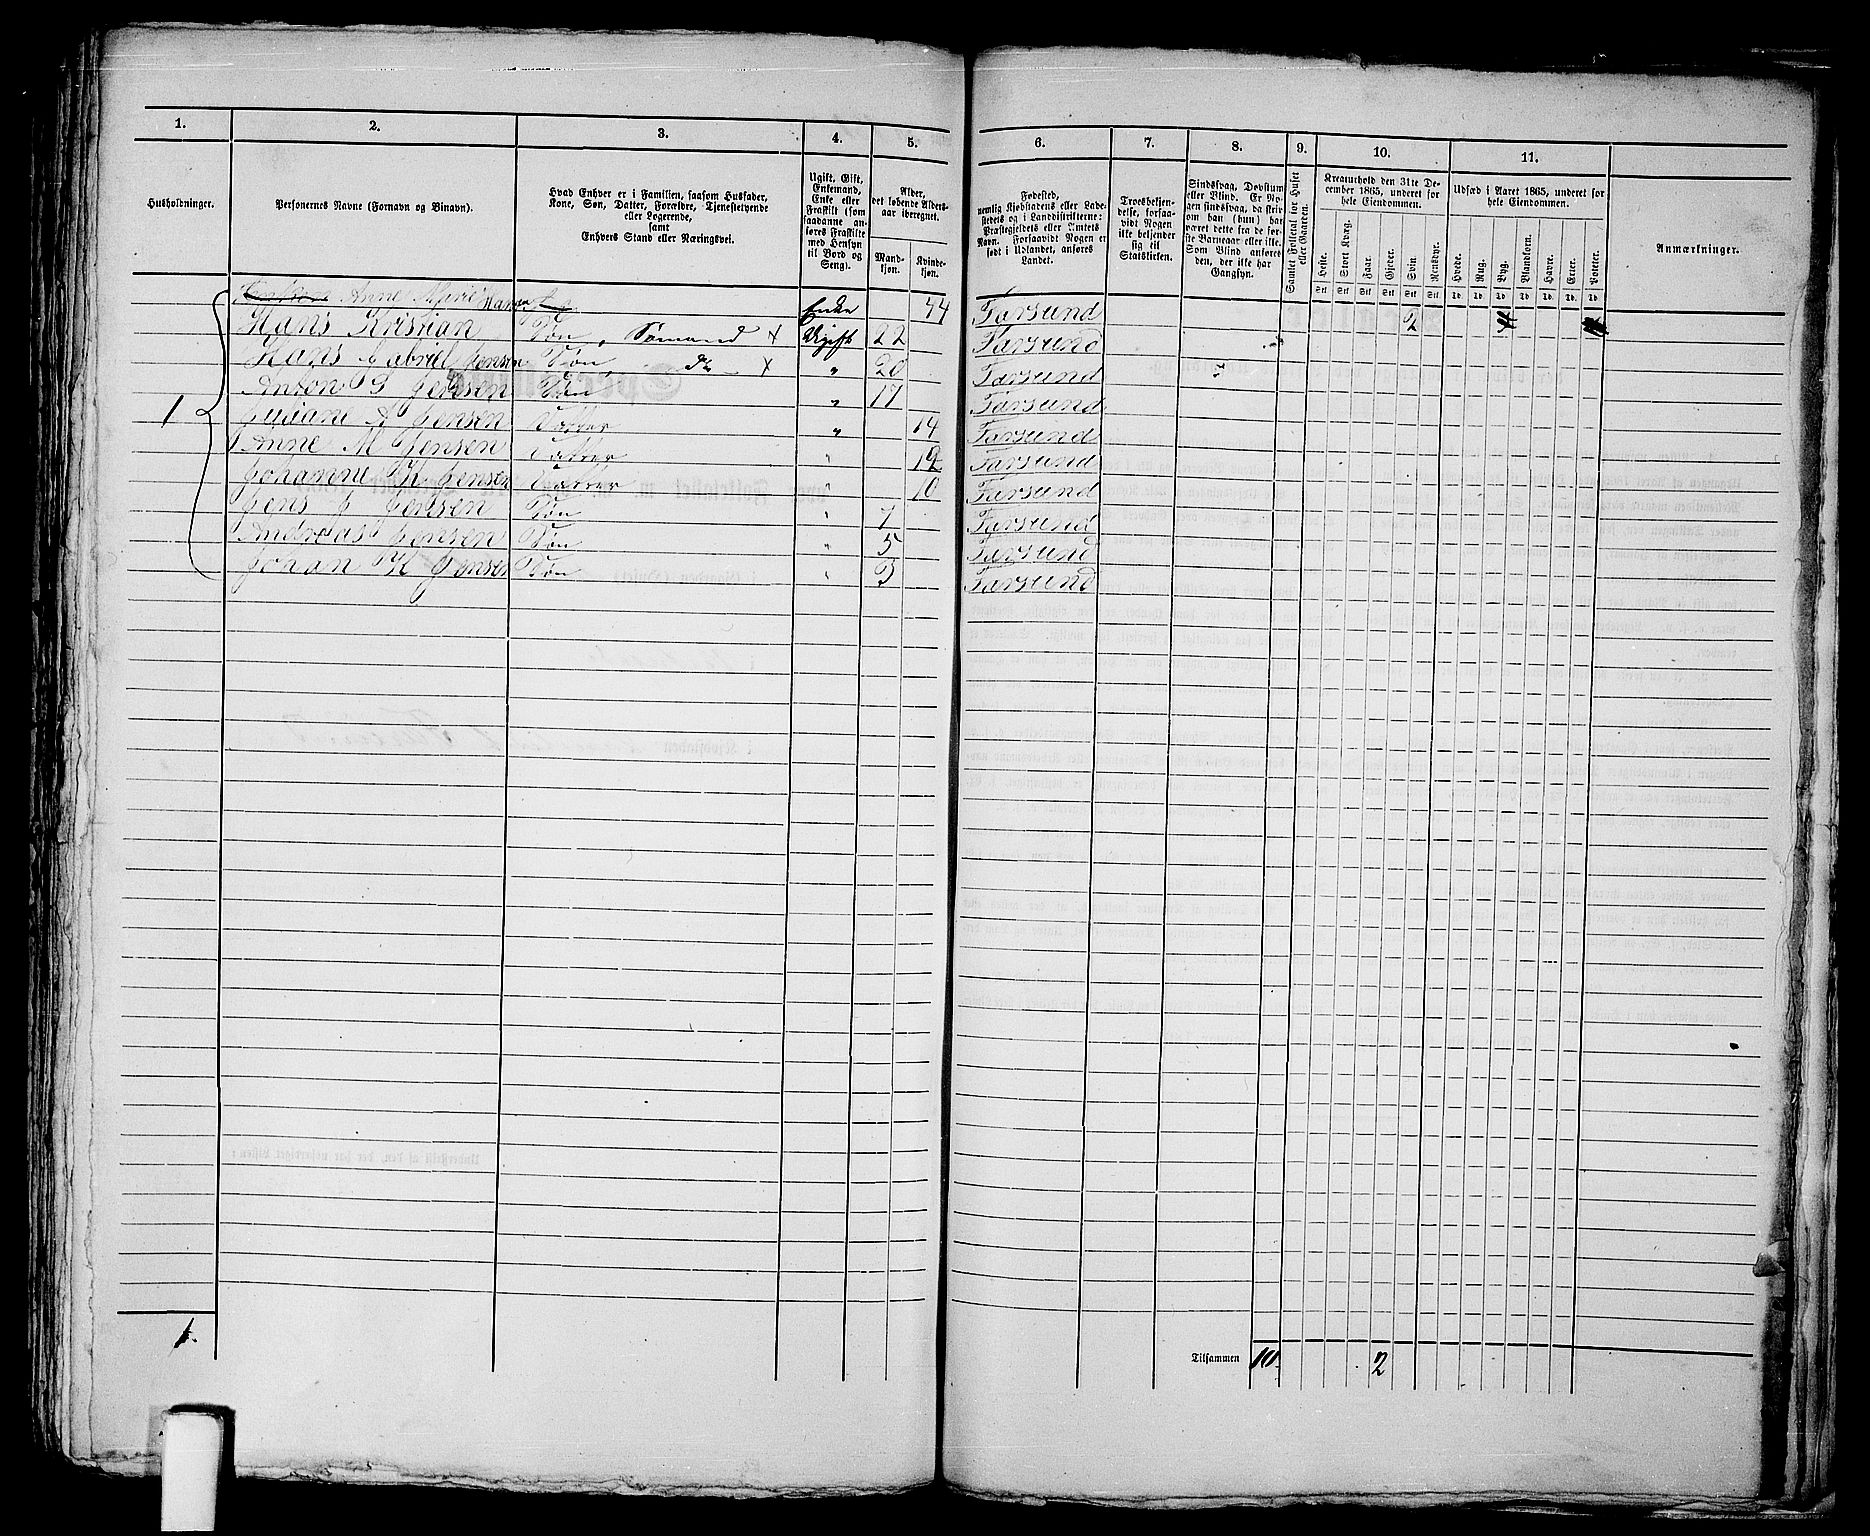 1. 2. 3. 4. 5. 6. 7. 8. 9. 10. 11.
Husholdninger.
Personernes Navne (Fornavn og Binavn).
Hvad Enhver er i Familien, saasom Husfader,
Kone, Søn, Datter, Forældre, Tjenestetyende
eller Logerende,
samt
Enhvers Stand eller Næringsvei.
Ugift, Gift,
Enkemand,
Enke eller
Fraskilt (som
saadanne an-
føres Fraskilte
med Hensyn
til Bord og
Seng).
Alder,
det løbende Alders-
aar iberegnet.
Mand-
kjøn.
Kvinde-
kjøn.
Fødested,
nemlig Kjøbstadens eller Lade-
stedets og i Landdistrikterne:
Præstegjeldets eller Amtets
Navn. Forsaavidt Nogen er
født i Udlandet, anføres
Landet.
Troesbekjen-
delse, forsaa-
vidt Nogen
ikke bekjender
sig til
Statskirken.
Sindssvag, Døvstum
eller Blind. Er No-
gen sindssvag, da skri-
ves om han (hun) har
været dette fra de før-
ste Barneaar eller ikke.
Som Blind anføres
den, der ikke har
Gangsyn.
Samlet Folketal for Huset
eller Gaarden.
Kreaturhold den 31te De-
cember 1865, underet for
hele Eiendommen.
Heste. Stort Kvæg. Faar. Gjeder. Svin. Rensdyr.
Stk Stk Stk Stk Stk Stk
Udsæd i Aaret 1865, underet for
hele Eiendommen.
Hvede. Rug. Byg. Blandkorn. Havre. Erter. Poteter.
Td. Td. Td. Td. Td. Td. Td.
Anmærkninger.
Anne Marie Enke 44 Farsund 2
Hans Kristian Søn, Sømand x Ugift 22 Farsund
Hans Gabriel Jensen Søn, do x „ 20 Farsund
Anton S Jensen Søn „ 17 Farsund
1 A Jensen Datter „ 14 Farsund
Anne M Jensen Datter „ 12 Farsund
Johanne K Jensen Datter „ 10 Farsund
Jens J Jensen Søn „ 7 Farsund
Andreas Jensen Søn „ 5 Farsund
Johan K Jensen Søn „ 3 Farsund
1. Tilsammen 10. 2